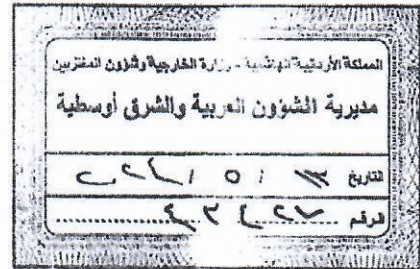 المملكة الأردنية الهاشمية - وزارة الخارجية وشؤون المغتربين
مديرية الشؤون العربية والشرق أوسطية
التاريخ
الرقم